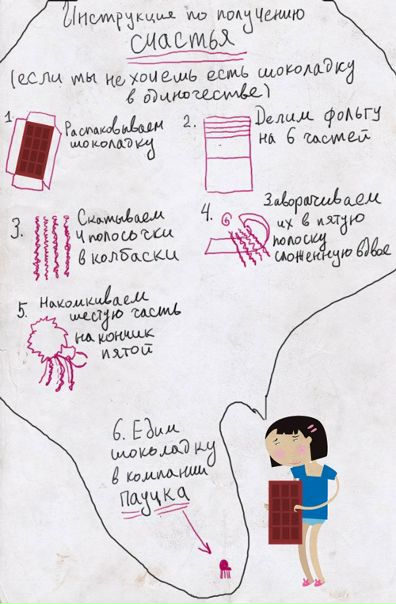 Инструкция по получению
счастья
(если ты не хочешь есть шоколадку
в одиночестве)
1. Распаковываем
шоколадку
2. Делим фольгу
на 6 частей
3. Скатываем
4 полосочки
в колбаски
4. Заворачиваем
их в пятую
полоску
сложенную вдвое
5. Накомкиваем
шестую часть
на кончик
пятой
6. Едим
шоколадку
в компании
паучка